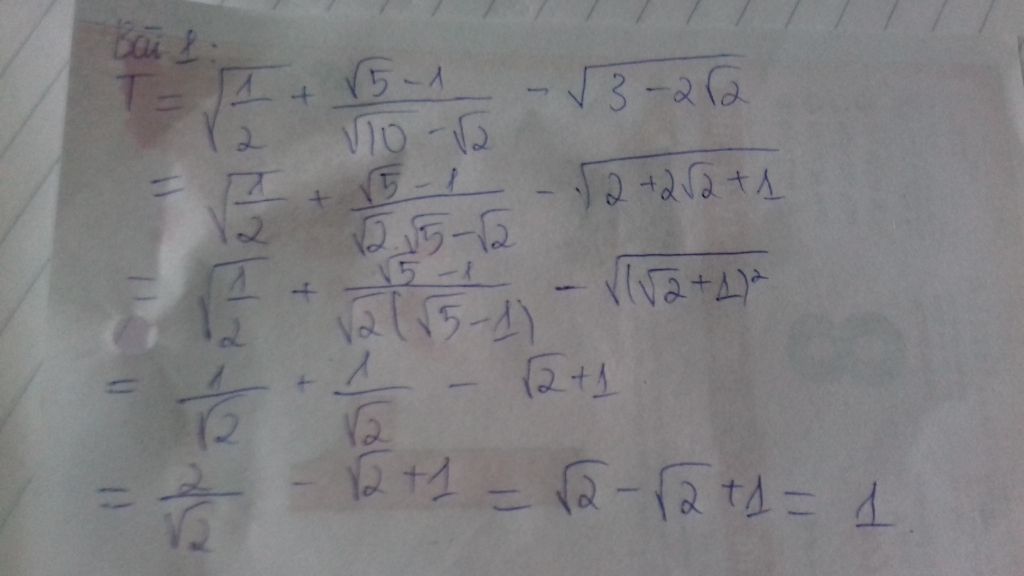 Bài 1:
T = √(1/2) + (√5 - 1)/(√10 - √2) - √(3 - 2√2)
= √(1/2) + (√5 - 1)/(√2.√5 - √2) - √(2 + 2√2 + 1)
= √(1/2) + (√5 - 1)/(√2(√5 - 1)) - √((√2 + 1)²)
= 1/√2 + 1/√2 - √2 + 1
= 2/√2 - √2 + 1 = √2 - √2 + 1 = 1